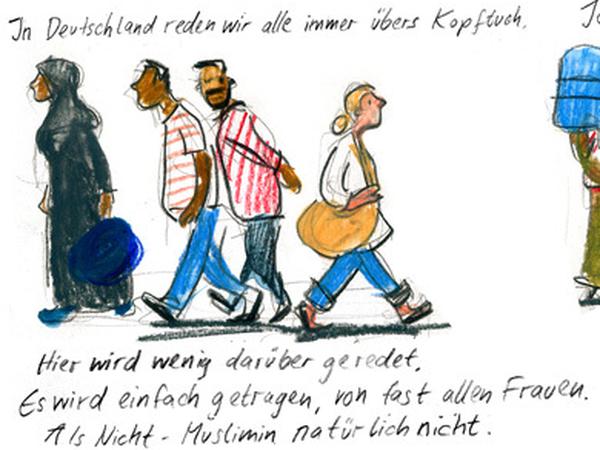 In Deutschland reden wir alle immer übers Kopftuch.
Hier wird wenig darüber geredet.
Es wird einfach getragen, von fast allen Frauen.
Als Nicht-Muslimin natürlich nicht.